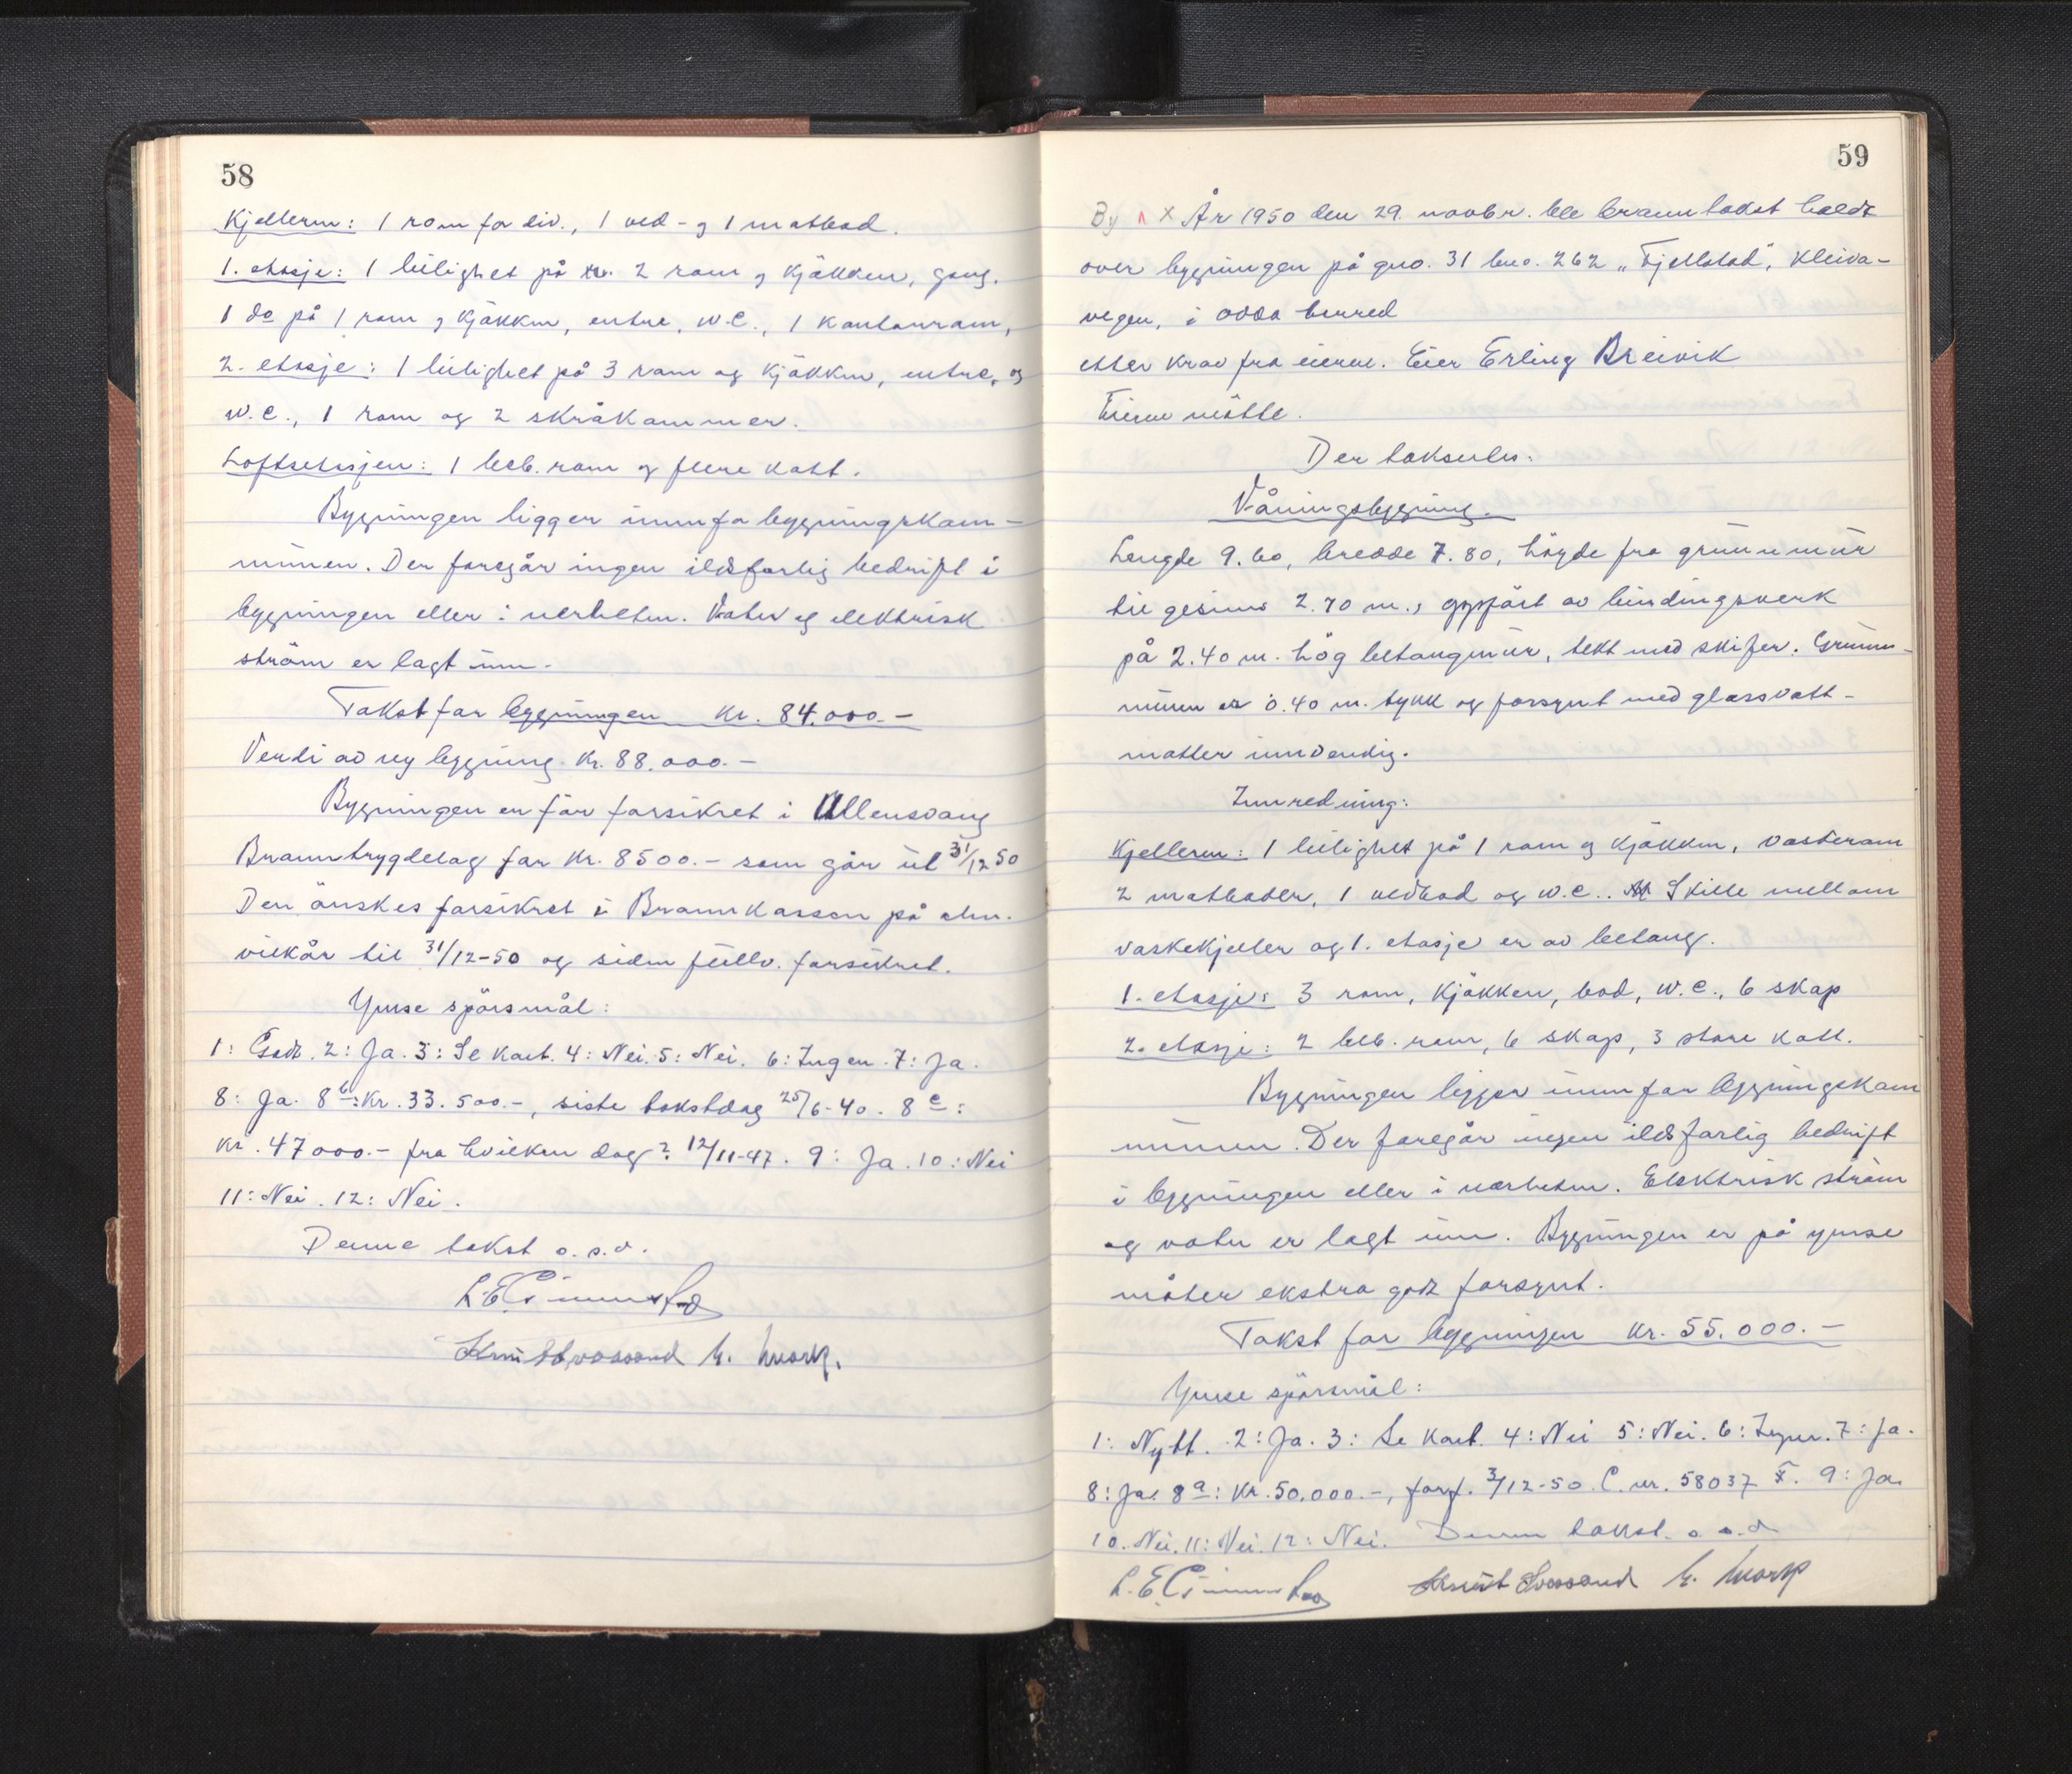 58
Kjelleren: 1 rom for div., 1 ved- og 1 matbod.
1. etasje: 1 leilighet på 2 rom og kjøkken, gang.
1 do på 1 rom og kjøkken, entre, w.c., 1 kontorrom,
2. etasje: 1 leilighet på 3 rom og kjøkken, entre, og
w.c., 1 rom og 2 skråkammer.
Loftsetasjen: 1 beb. rom og flere kott.
Bygningen ligger innenfor bygningskom-
munen. Der foregår ingen ildsfarlig bedrift i
bygningen eller i nerheten. Vatn og elektrisk
strøm er lagt inn.
Takst for bygningen kr. 84.000.-
Verdi av ny bygning kr. 88.000.-
Bygningen er før forsikret i Ullensvang
Branntrygdelag for kr. 8500.- som går ut 31/12 50
Den ønskes forsikret i Brannkassen på alm.
vilkår til 31/12-50 og siden fullv. forsikret.
Ymse spørsmål:
1: Godt. 2: Ja. 3: Se kart. 4: Nei. 5: Nei. 6: Ingen. 7: Ja.
8: Ja. 8b: kr. 33.500.-, siste takstdag 25/6-40. 8c:
kr. 47000.- fra hvilken dag? 12/11-47. 9: Ja. 10: Nei
11: Nei. 12: Nei.
Denne takst o.s.v.
59
By x År 1950 den 29. novbr. ble branntakst holdt
over bygningen på gno. 31 bno. 262 „Fjellstad", Kleiva-
vegen, i Odda herred
etter krav fra eieren. Eier Erling Breivik
Eieren møtte.
Der takseres:
Våningsbygning.
Lengde 9.60, bredde 7.80, høyde fra grunnmur
til gesims 2.70 m., oppført av bindingsverk
på 2.40 m. høg betongmur, tekt med skifer. Grunn-
muren er 0.40 m. tykk og forsynt med glassvatt-
matter innvendig.
Innredning:
Kjelleren: 1 leilighet på 1 rom og kjøkken, vaskerom
2 matboder, 1 vedbod og w.c.. Skille mellom
vaskekjeller og 1. etasje er av betong.
1. etasje: 3 rom, kjøkken, bod, w.c., 6 skap
2. etasje: 2 beb. rom, 6 skap, 3 store kott.
Bygningen ligger innenfor bygningskom
munen. Der foregår ingen ildsfarlig bedrift
i bygningen eller i nærheten. Elektrisk strøm
og vatn er lagt inn. Bygningen er på ymse
måter ekstra godt forsynt.
Takst for bygningen kr. 55.000.-
Ymse spørsmål:
1: Nytt. 2: Ja. 3: Se kart. 4: Nei 5: Nei. 6: Ingen. 7: Ja.
8: Ja. 8a: kr. 50.000.-, forf. 3/12-50. C. nr. 58037 9: Ja.
10. Nei. 11: Nei. 12: Nei. Denne takst o.s.v.